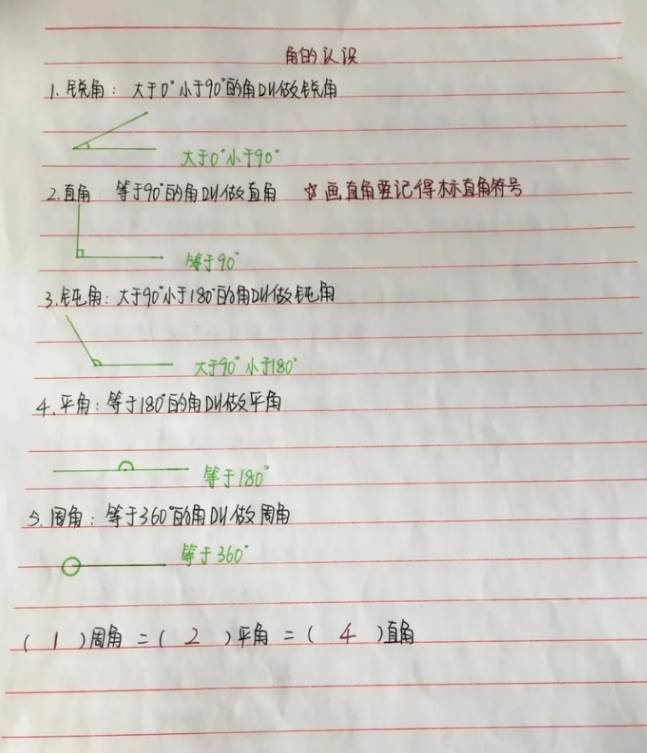 角的认识
1. 锐角：大于0°小于90°的角叫做锐角
大于0°小于90°
2. 直角 等于90°的角叫做直角 ☆画直角要记得标直角符号
等于90°
3. 钝角：大于90°小于180°的角叫做钝角
大于90°小于180°
4. 平角：等于180°的角叫做平角
等于180°
5. 周角：等于360°的角叫做周角
等于360°
（ 1 ）周角 =（ 2 ）平角 =（ 4 ）直角